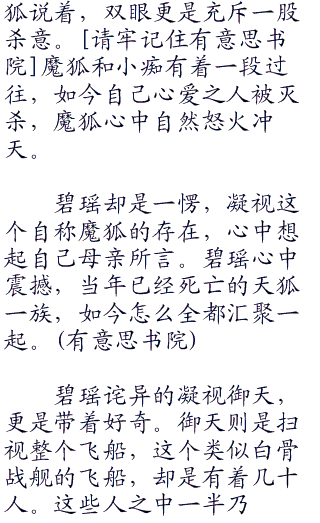 狐说着，双眼更是充斥一股
杀意。[请牢记住有意思书
院]魔狐和小痴有着一段过
往，如今自己心爱之人被灭
杀，魔狐心中自然怒火冲
天。
碧瑶却是一愣，凝视这
个自称魔狐的存在，心中想
起自己母亲所言。碧瑶心中
震撼，当年已经死亡的天狐
一族，如今怎么全都汇聚一
起。(有意思书院)
碧瑶诧异的凝视御天，
更是带着好奇。御天则是扫
视整个飞船，这个类似白骨
战舰的飞船，却是有着几十
人。这些人之中一半乃